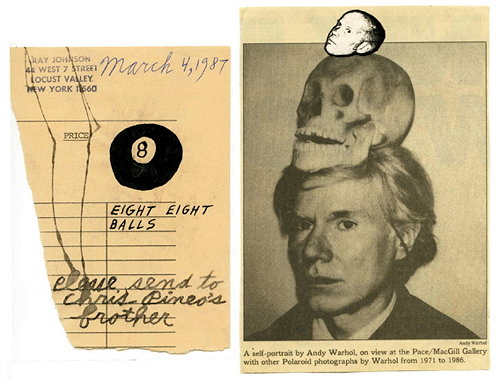 RAY JOHNSON
44 WEST 7 STREET
LOCUST VALLEY
NEW YORK 11560
March 4, 1987
PRICE
8
EIGHT EIGHT
BALLS
please send to
Chris Pineo's
brother
Andy Warhol
A self-portrait by Andy Warhol, on view at the Pace/MacGill Gallery
with other Polaroid photographs by Warhol from 1971 to 1986.